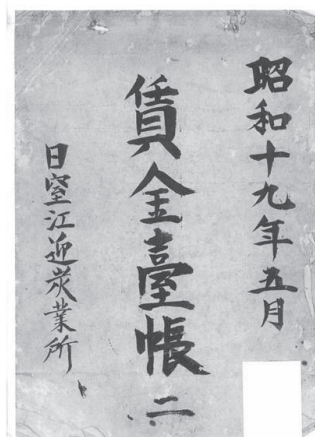 昭和十九年五月
賃金臺帳 二
日窒江迎炭業所